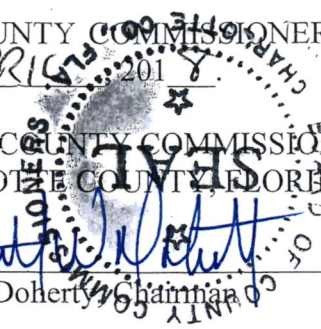 UNTY COMMISSIONER
201
COUNTY COMMISSIO
OTTE COUNTY, FLORI
Doherty, Chairman
SEAL
CHARLOTTE CO. FLA.
OF COUNTY COMMISSIONERS